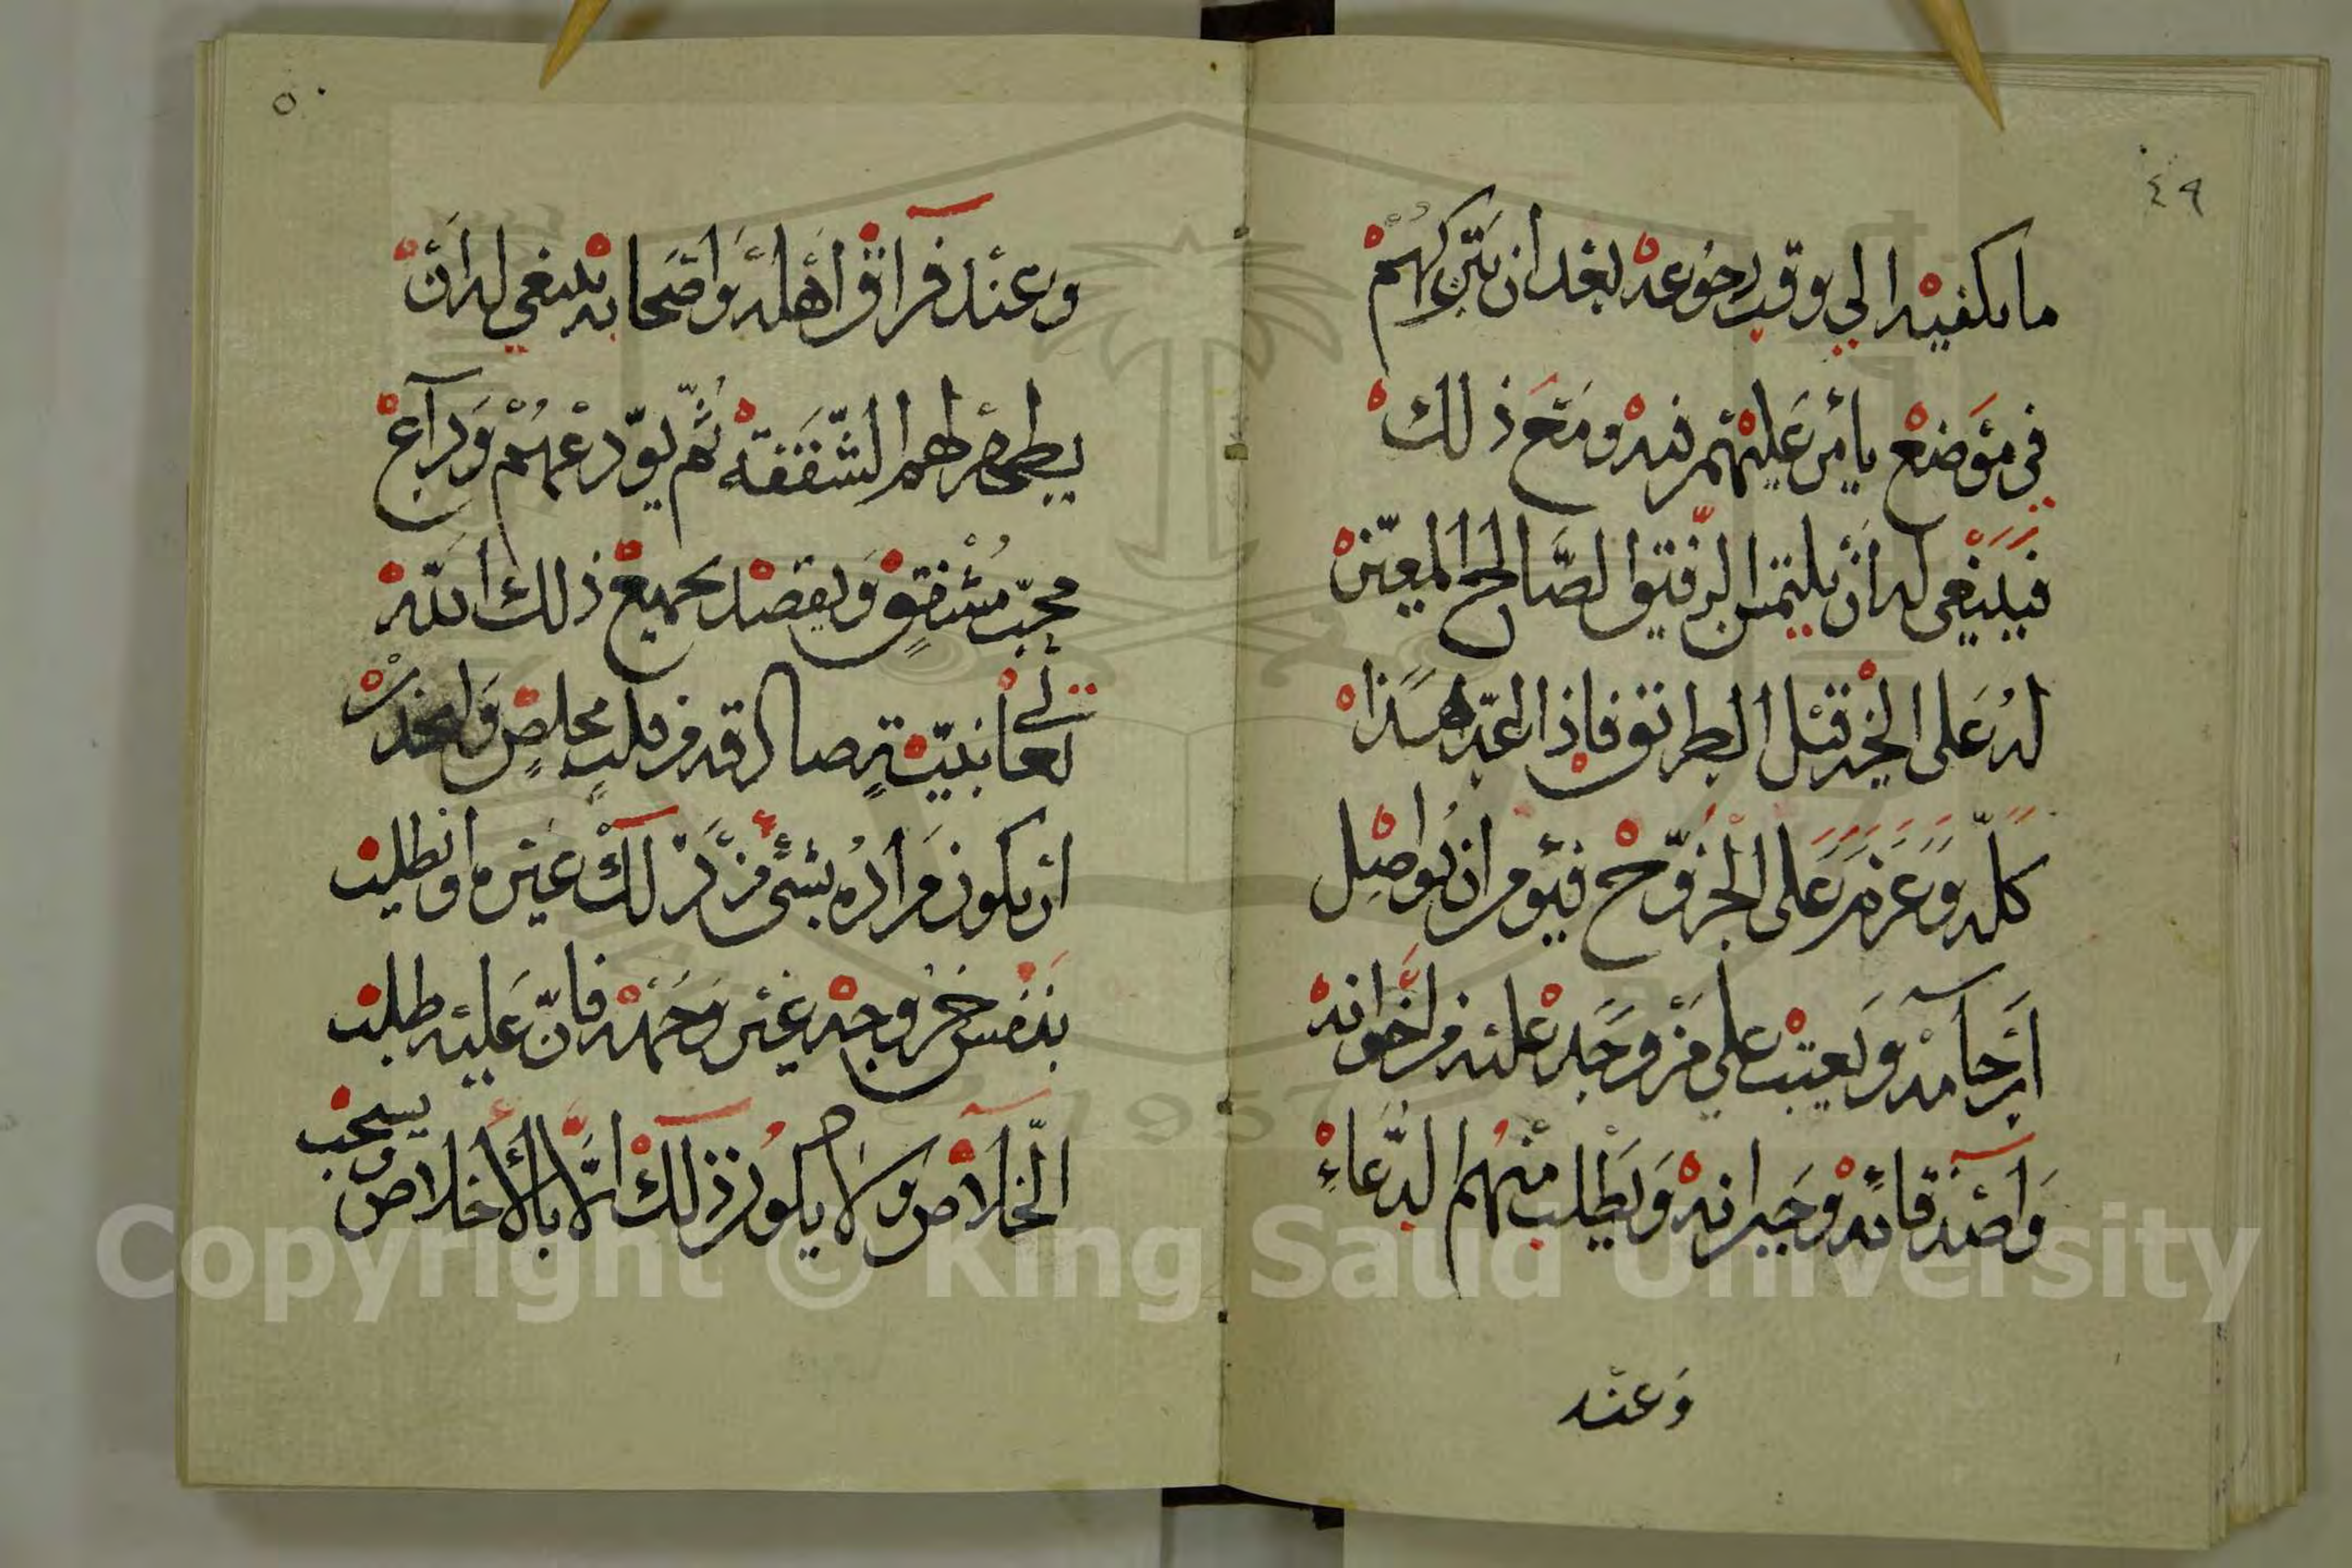 ٤٩
ما يكفيه الي وقت رجوعه بعد ان يتركهم
في موضع يأمن عليهم فيه ومتع ذلك
فينبغي له أن يلتمس الرفيق الصالح المعين
له على الخير قبل الطريق فاذا اعد هذا
كله وعزم على الخروج فيؤمر ان يواصل
أرحامه ويعتب على من وجد عليه من اخوانه
وأصدقائه وجيرانه ويطلب منهم الدعاء
وعند
٥٠
وعند فراق أهله وأصحابه ينبغي له أن
يظهر لهم الشفقة ثم يودعهم وداع
محب مشفق ويقصد بجميع ذلك الله
تعالى بنية صادقة من قلب مخلص واحذر
ان يكون مراده بشئ من ذلك غيره او يطلب
بنفس خروجه غير وجهه فان عليه طلب
الخلاص ولا يكون ذلك الا بالأخلاص
ويسحب
Copyright © King Saud University
1957